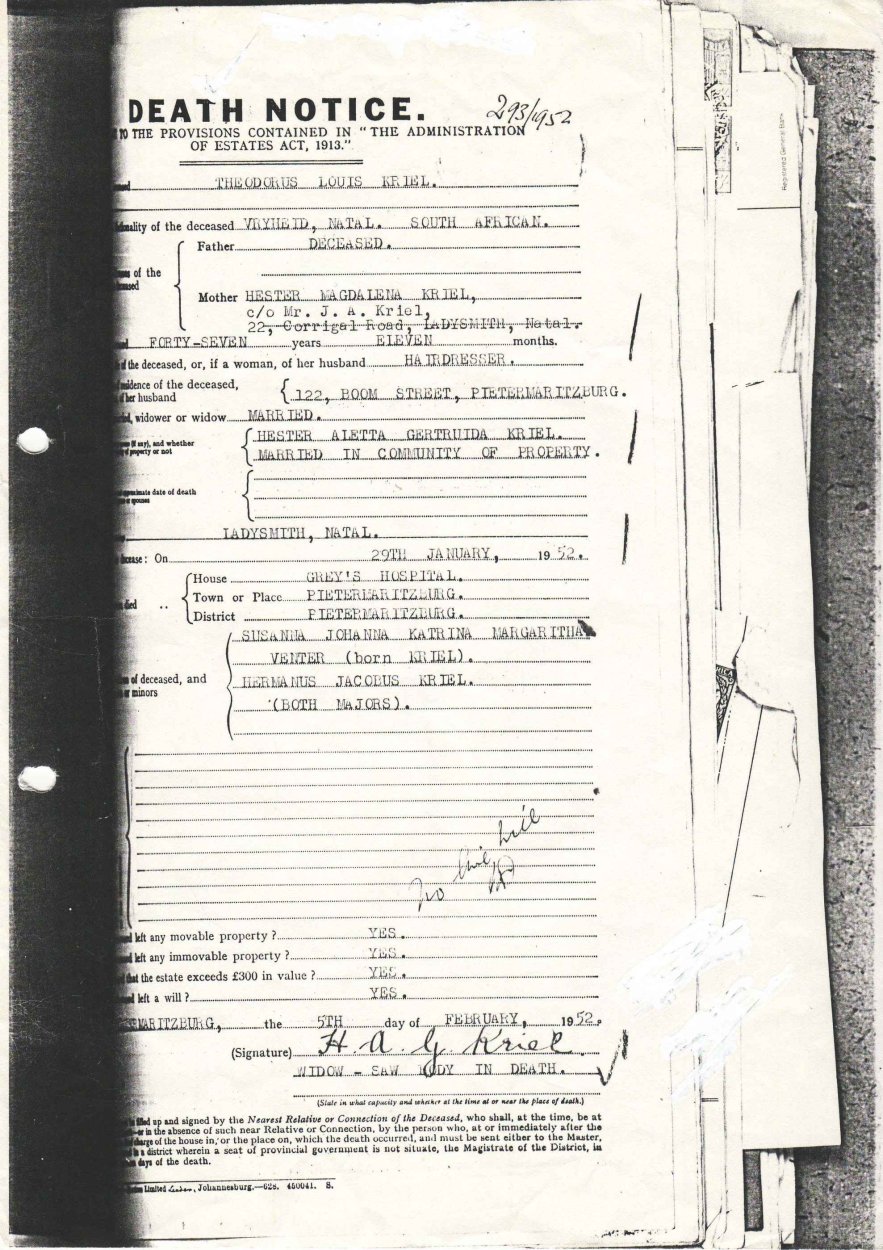 DEATH NOTICE. 293/1952
TO THE PROVISIONS CONTAINED IN "THE ADMINISTRATION
OF ESTATES ACT, 1913."
THEODORUS LOUIS KRIEL.
of the deceased VRYHEID, NATAL. SOUTH AFRICAN.
Father DECEASED.
of the
Mother HESTER MAGDALENA KRIEL,
c/o Mr. J. A. Kriel,
22, Corrigal Road, LADYSMITH, Natal.
FORTY-SEVEN years ELEVEN months.
of the deceased, or, if a woman, of her husband HAIRDRESSER.
of the deceased,
her husband
122, BOOM STREET, PIETERMARITZBURG.
widower or widow MARRIED.
any), and whether
of property or not
HESTER ALETTA GERTRUIDA KRIEL.
MARRIED IN COMMUNITY OF PROPERTY.
date of death
or spouses
LADYSMITH, NATAL.
On 29TH JANUARY, 1952.
House GREY'S HOSPITAL.
died .. Town or Place PIETERMARITZBURG.
District PIETERMARITZBURG.
SUSANNA JOHANNA KATRINA MARGARITHA
VENTER (born KRIEL).
of deceased, and
or minors
HERMANUS JACOBUS KRIEL.
(BOTH MAJORS).
left any movable property ? YES.
left any immovable property ? YES.
that the estate exceeds £300 in value ? YES.
left a will ? YES.
MARITZBURG, the 5TH day of FEBRUARY, 1952.
(Signature) H. A. G Kriel
WIDOW - SAW BODY IN DEATH.
(State in what capacity and whether at the time at or near the place of death.)
filled up and signed by the Nearest Relative or Connection of the Deceased, who shall, at the time, be at
or in the absence of such near Relative or Connection, by the person who, at or immediately after the
charge of the house in, or the place on, which the death occurred, and must be sent either to the Master,
a district wherein a seat of provincial government is not situate, the Magistrate of the District, in
days of the death.
Limited, Johannesburg.—628. 450041. S.